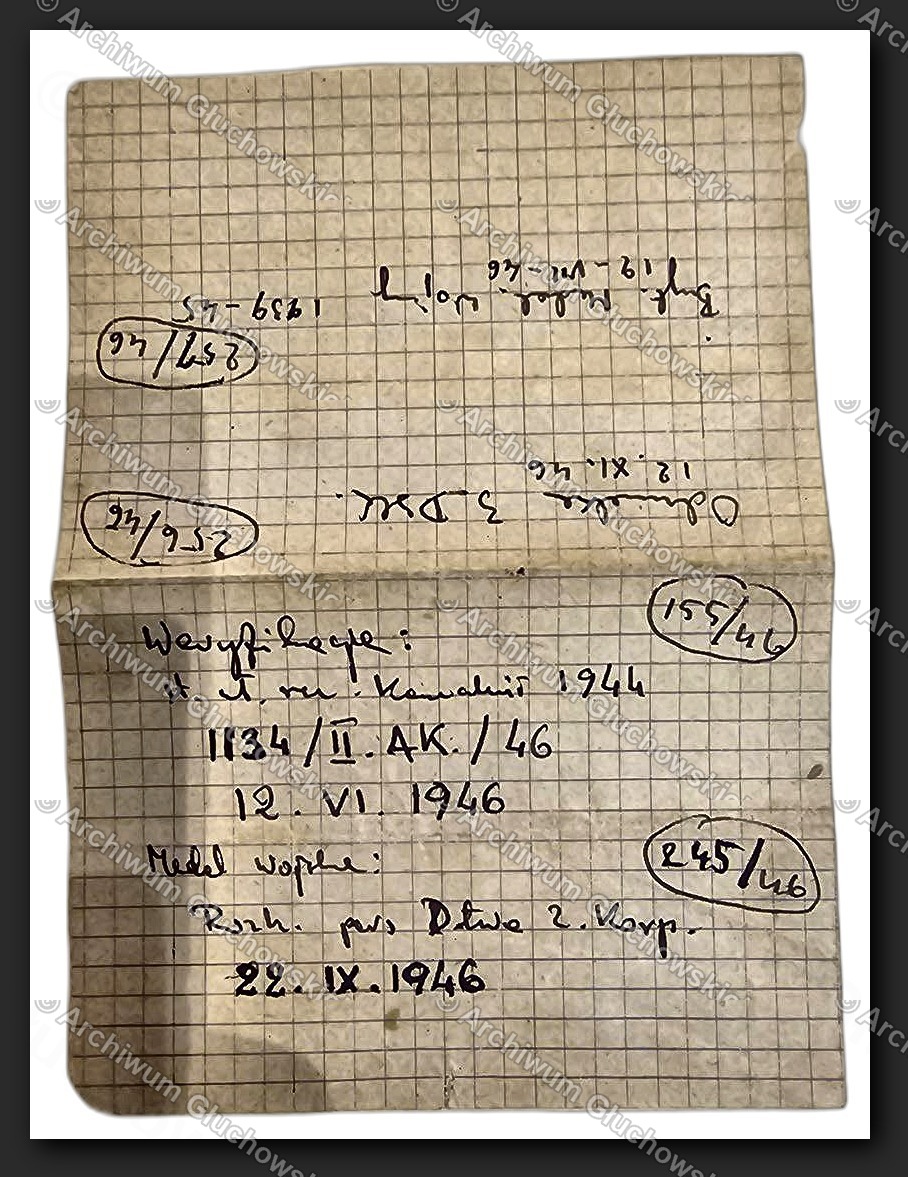 155/46
Weryfikacja:
st. uł. rez. Kawalerii 1944
1134/II.AK./46
12. VI. 1946
245/46
Medal wojska:
Rozk. pers Dtwa 2. Korp.
22. IX. 1946
256/46
Odznaka 3. DSK.
12. XI. 46
257/46
Bryt. Medal Wojny 1939-45
19-VII-46
© Archiwum Głuchowskich